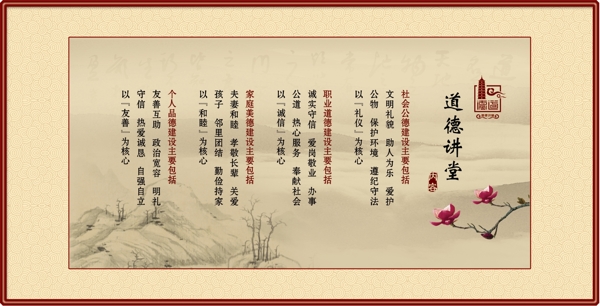 道德讲堂
内容
社会公德建设主要包括
文明礼貌 助人为乐 爱护
公物 保护环境 遵纪守法
以“礼仪”为核心
职业道德建设主要包括
诚实守信 爱岗敬业 办事
公道 热心服务 奉献社会
以“诚信”为核心
家庭美德建设主要包括
夫妻和睦 孝敬长辈 关爱
孩子 邻里团结 勤俭持家
以“和睦”为核心
个人品德建设主要包括
友善互助 政治宽容 明礼
守信 热爱诚恳 自强自立
以“友善”为核心